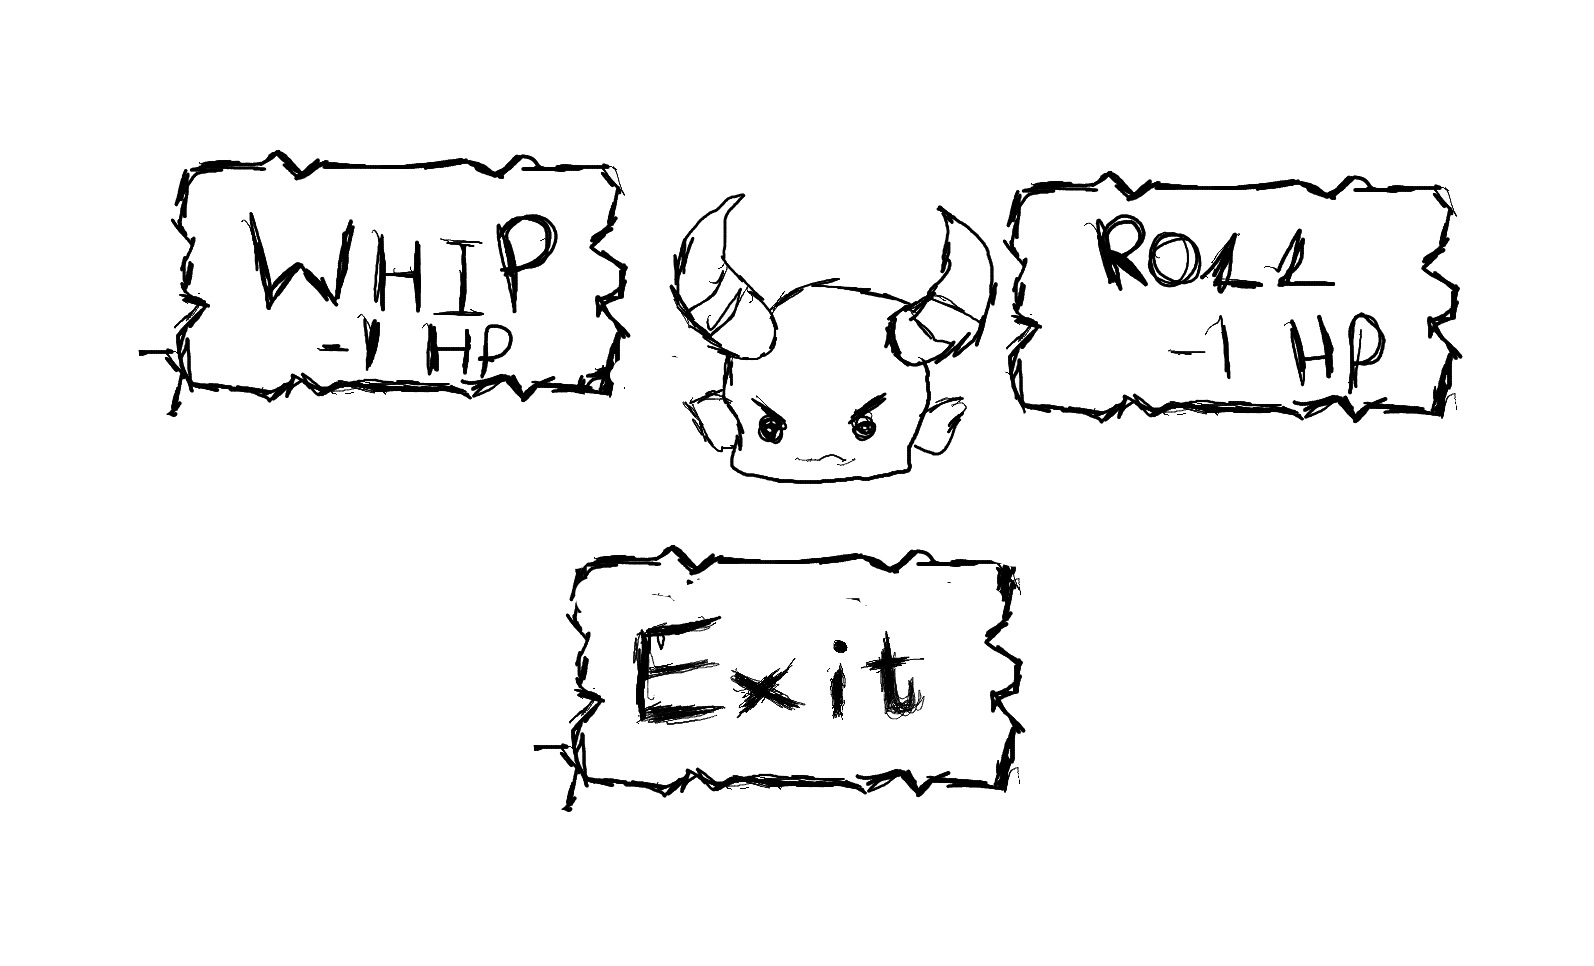 WHIP
-1 HP
ROLL
-1 HP
Exit